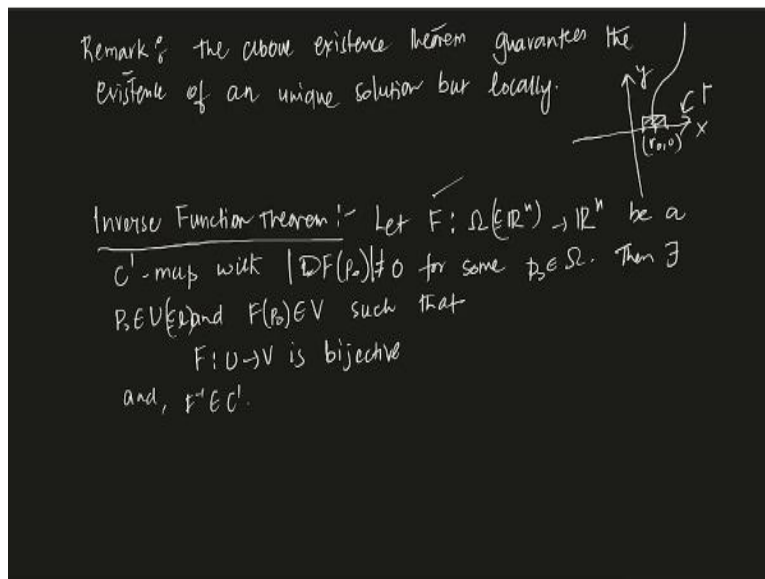 Remark: the above existence theorem guarantees the
existence of an unique solution but locally.
y
Γ
x
(r₀,0)
Inverse Function Theorem:- Let F: Ω(⊆ℝⁿ) → ℝⁿ be a
C¹-map with |DF(p₀)| ≠ 0 for some p₀ ∈ Ω. Then ∃
p₀ ∈ U(⊆Ω) and F(p₀) ∈ V such that
F: U → V is bijective
and, F⁻¹ ∈ C¹.